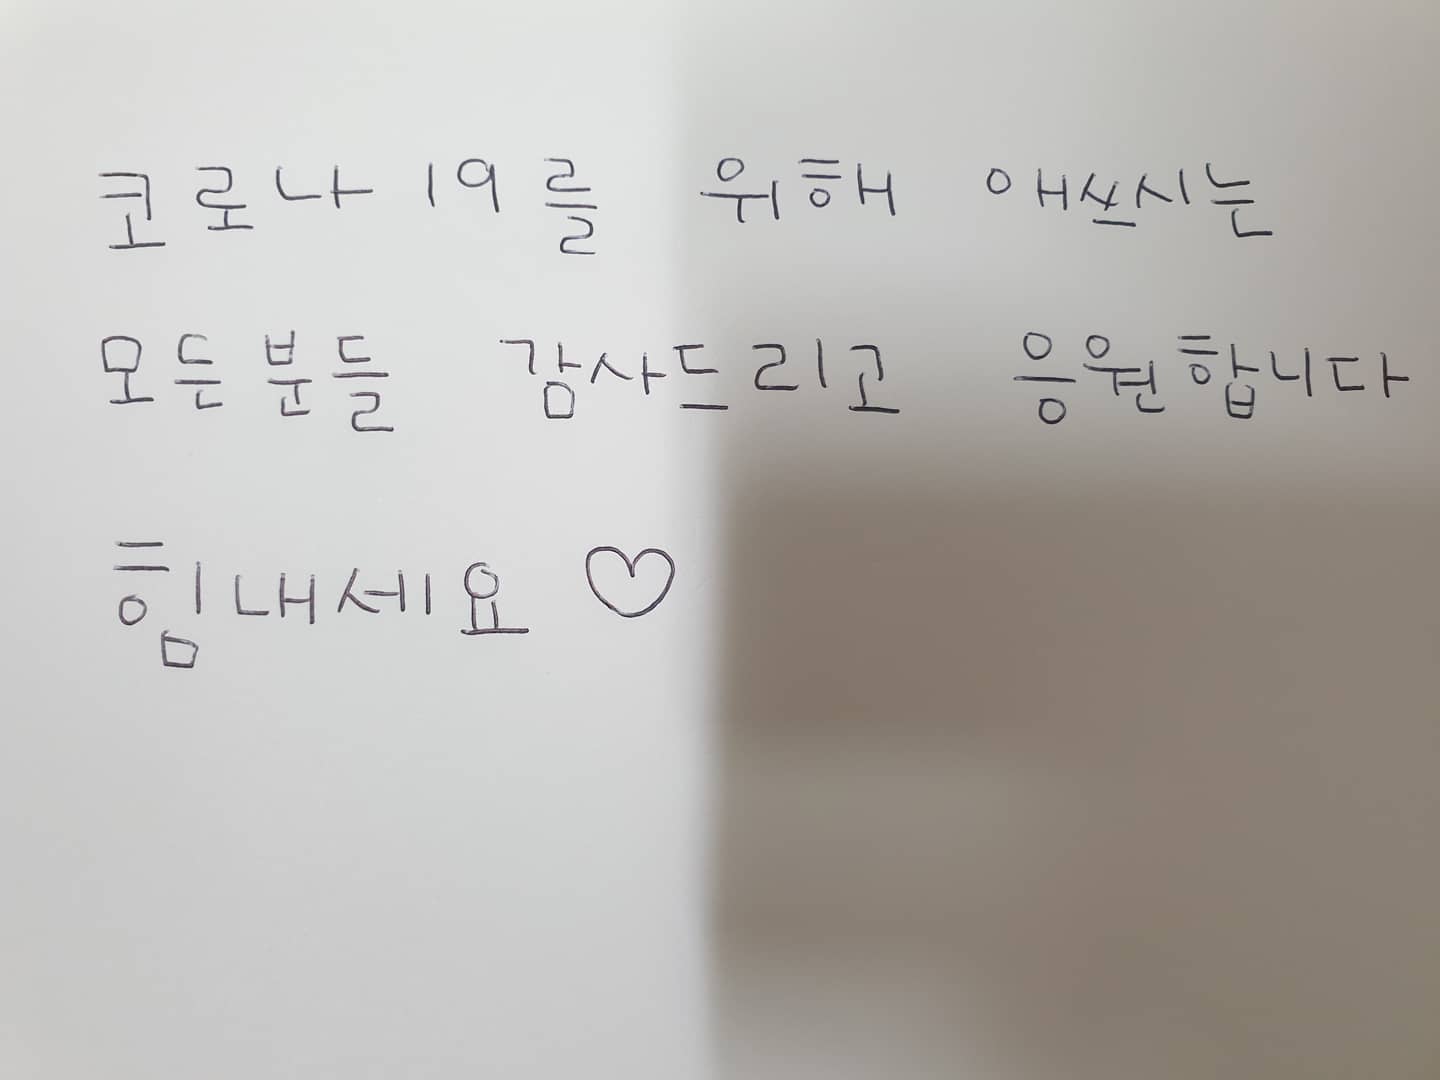 코로나19를 위해 애쓰시는
모든분들 감사드리고 응원합니다
힘내세요♡